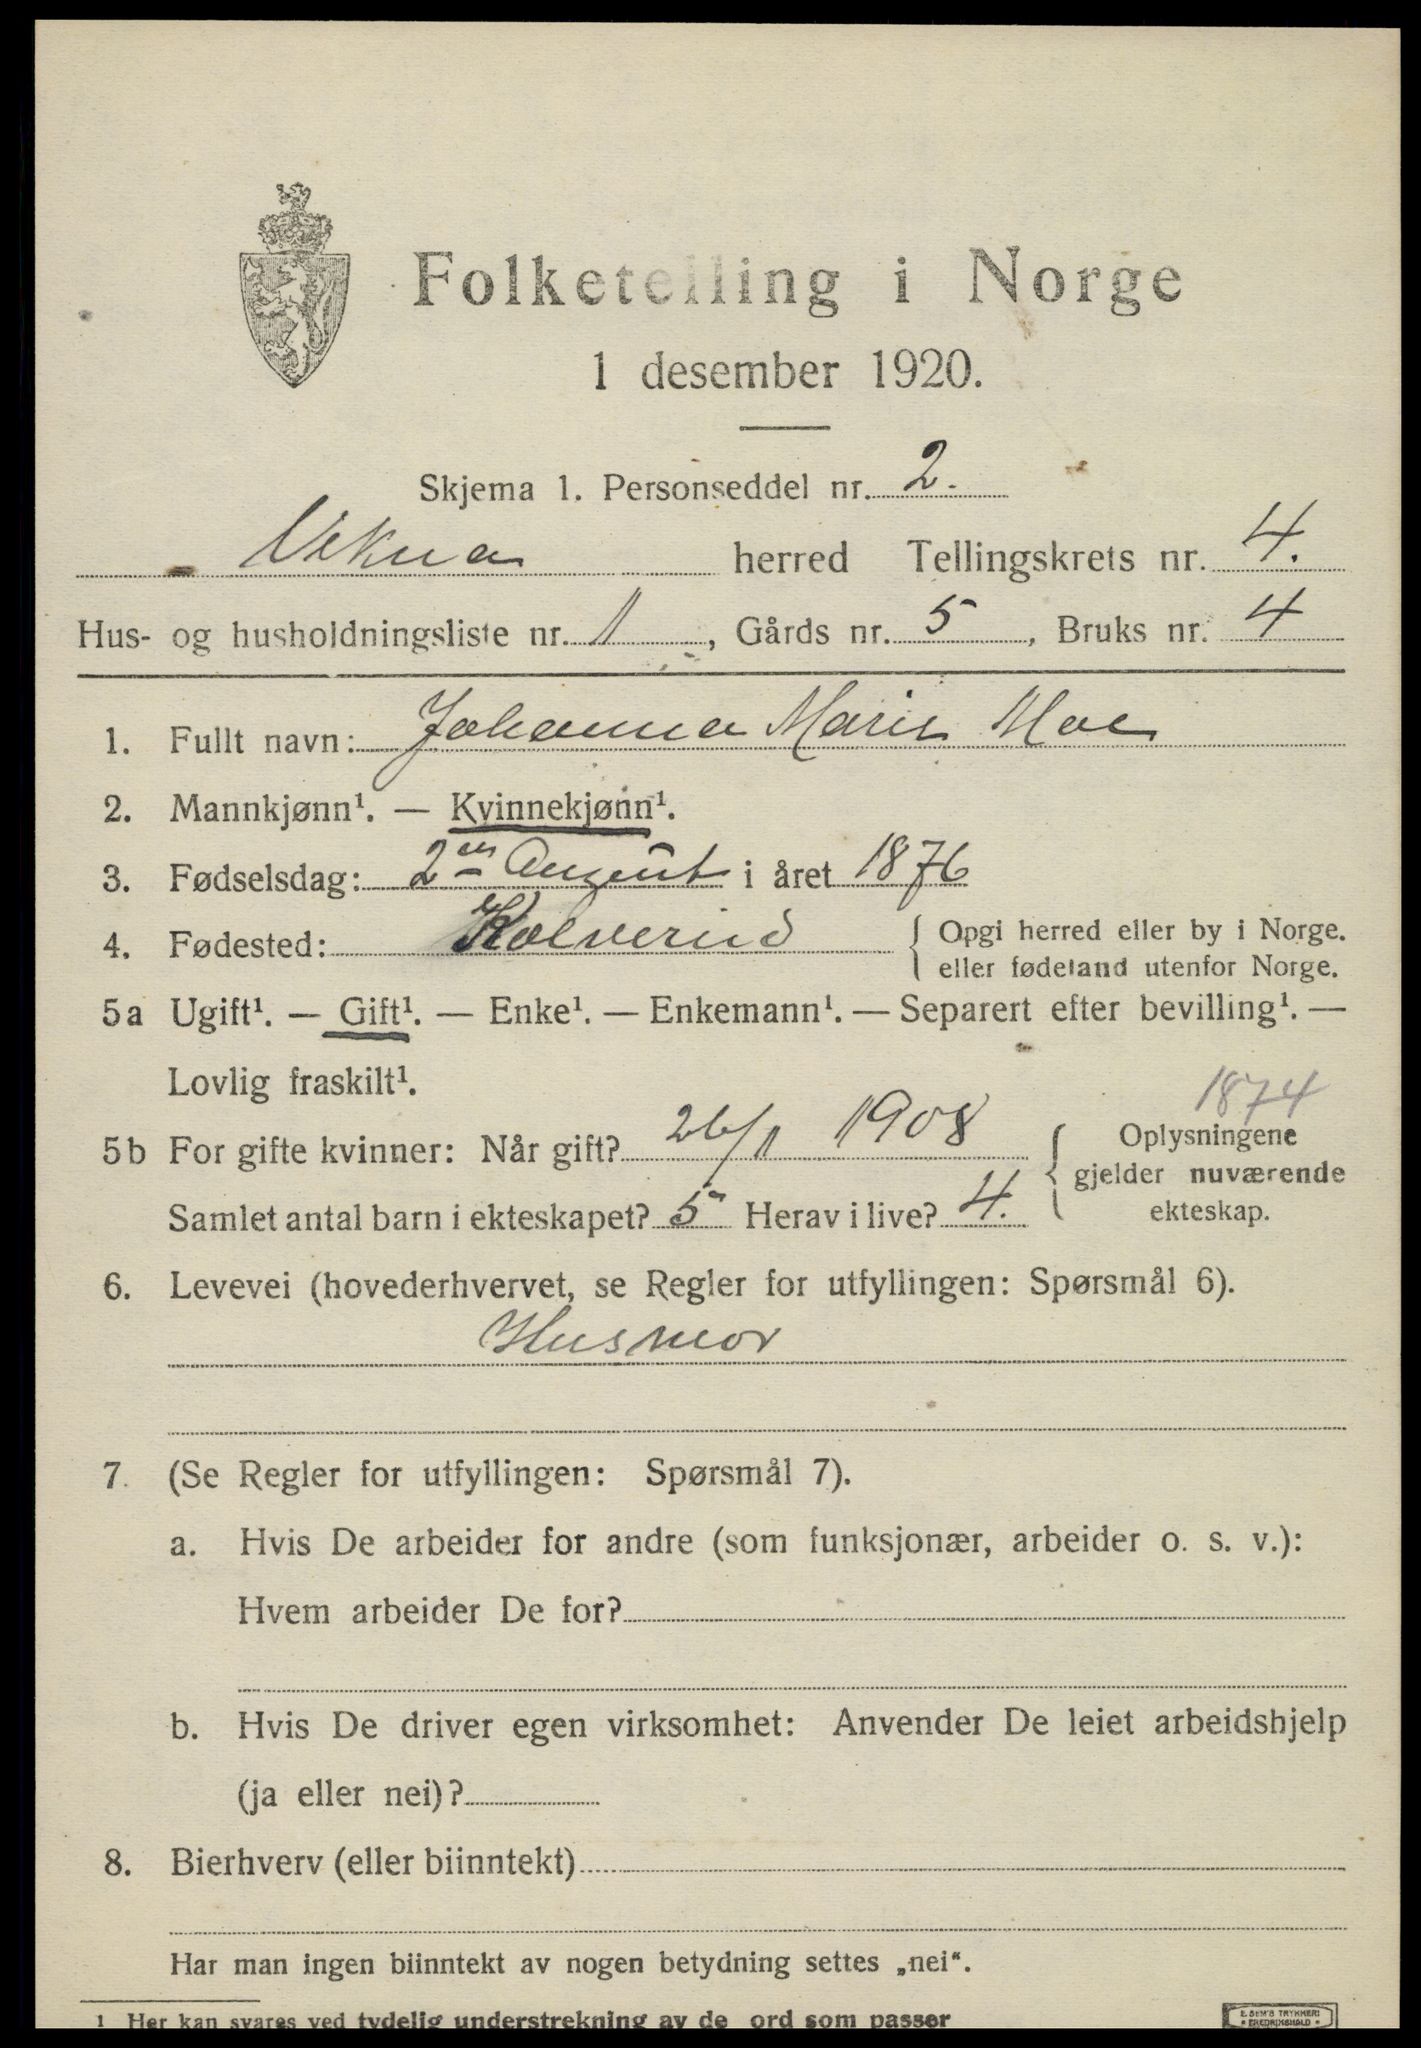 Folketelling i Norge
1 desember 1920.
Skjema 1. Personseddel nr. 2.
Vikna herred Tellingskrets nr. 4.
Hus- og husholdningsliste nr. 11, Gårds nr. 5, Bruks nr. 4
1. Fullt navn: Johanna Marie Moe
2. Mannkjønn¹. — Kvinnekjønn¹.
3. Fødselsdag: 2en August i året 1876
4. Fødested: Kolvereid { Opgi herred eller by i Norge.
eller fødeland utenfor Norge.
5a Ugift¹. — Gift¹. — Enke¹. — Enkemann¹. — Separert efter bevilling¹. —
Lovlig fraskilt¹.
1874
5b For gifte kvinner: Når gift? 26/11 1908
Samlet antal barn i ekteskapet? 5 Herav i live? 4.
{ Oplysningene
gjelder nuværende
ekteskap.
6. Levevei (hovederhvervet, se Regler for utfyllingen: Spørsmål 6).
Husmor
7. (Se Regler for utfyllingen: Spørsmål 7).
a. Hvis De arbeider for andre (som funksjonær, arbeider o. s. v.):
Hvem arbeider De for?
b. Hvis De driver egen virksomhet: Anvender De leiet arbeidshjelp
(ja eller nei)?
8. Bierhverv (eller biinntekt)
Har man ingen biinntekt av nogen betydning settes „nei“.
¹ Her kan svares ved tydelig understrekning av de ord som passer
E. SEM'S TRYKKERI
FREDRIKSHALD